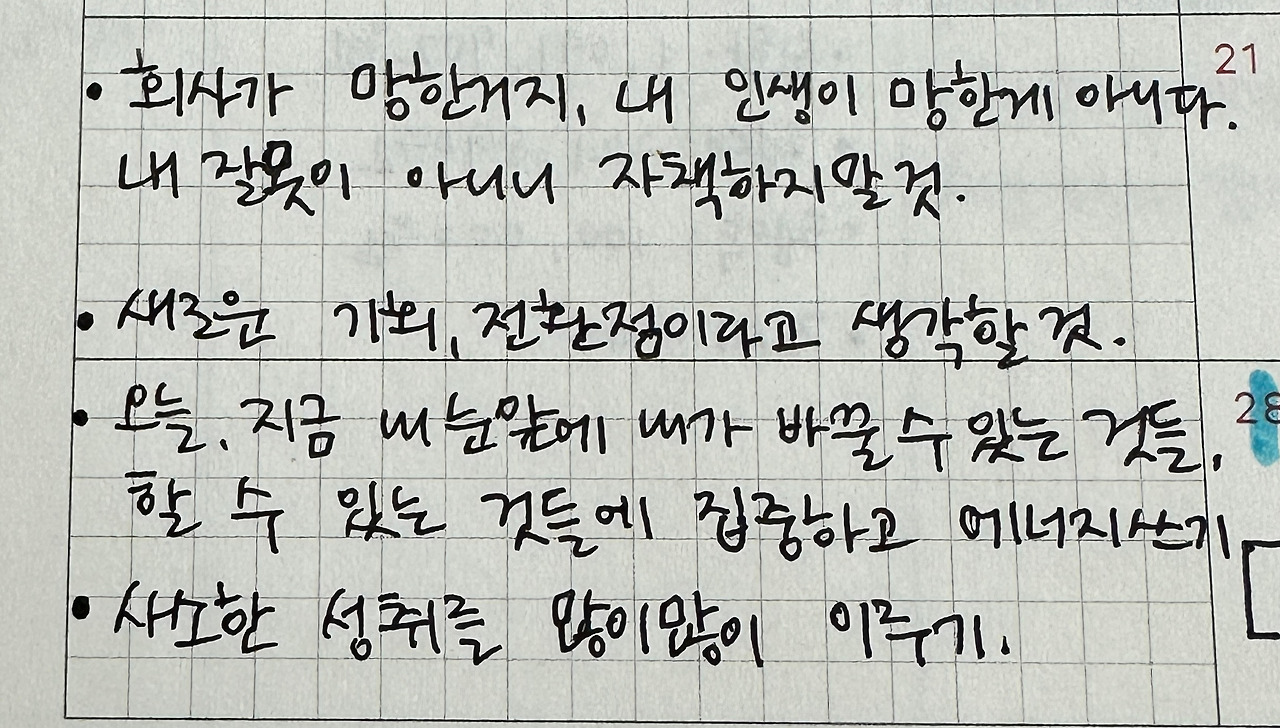 • 회사가 망한거지, 내 인생이 망한게 아니다.
21
내 잘못이 아니니 자책하지말 것.
• 새로운 기회, 전환점이라고 생각할 것.
• 오늘, 지금 내 눈앞에 내가 바꿀 수 있는 것들,
28
할 수 있는 것들에 집중하고 에너지쓰기
• 사소한 성취를 많이많이 이루기.